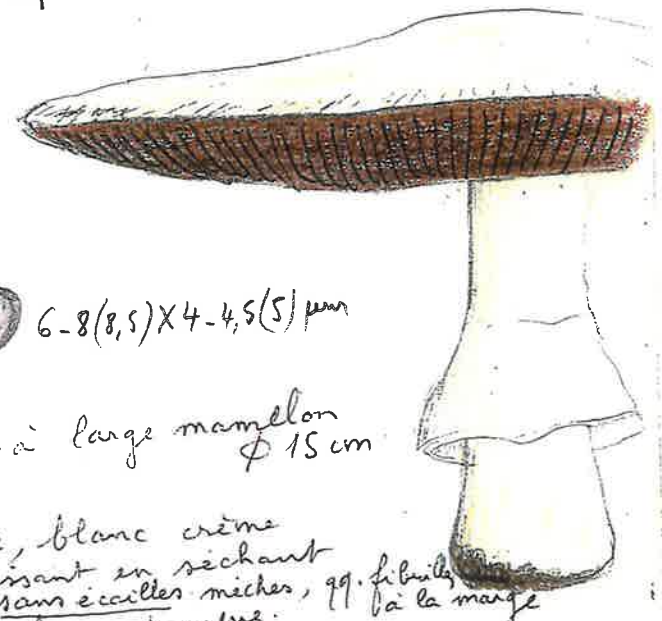 6-8(8,5)X4-4,5(5) μm
à large mamelon
ϕ 15 cm
, blanc crème
ssant en séchant
sans écailles mèches, qq. fibrilles
à la marge